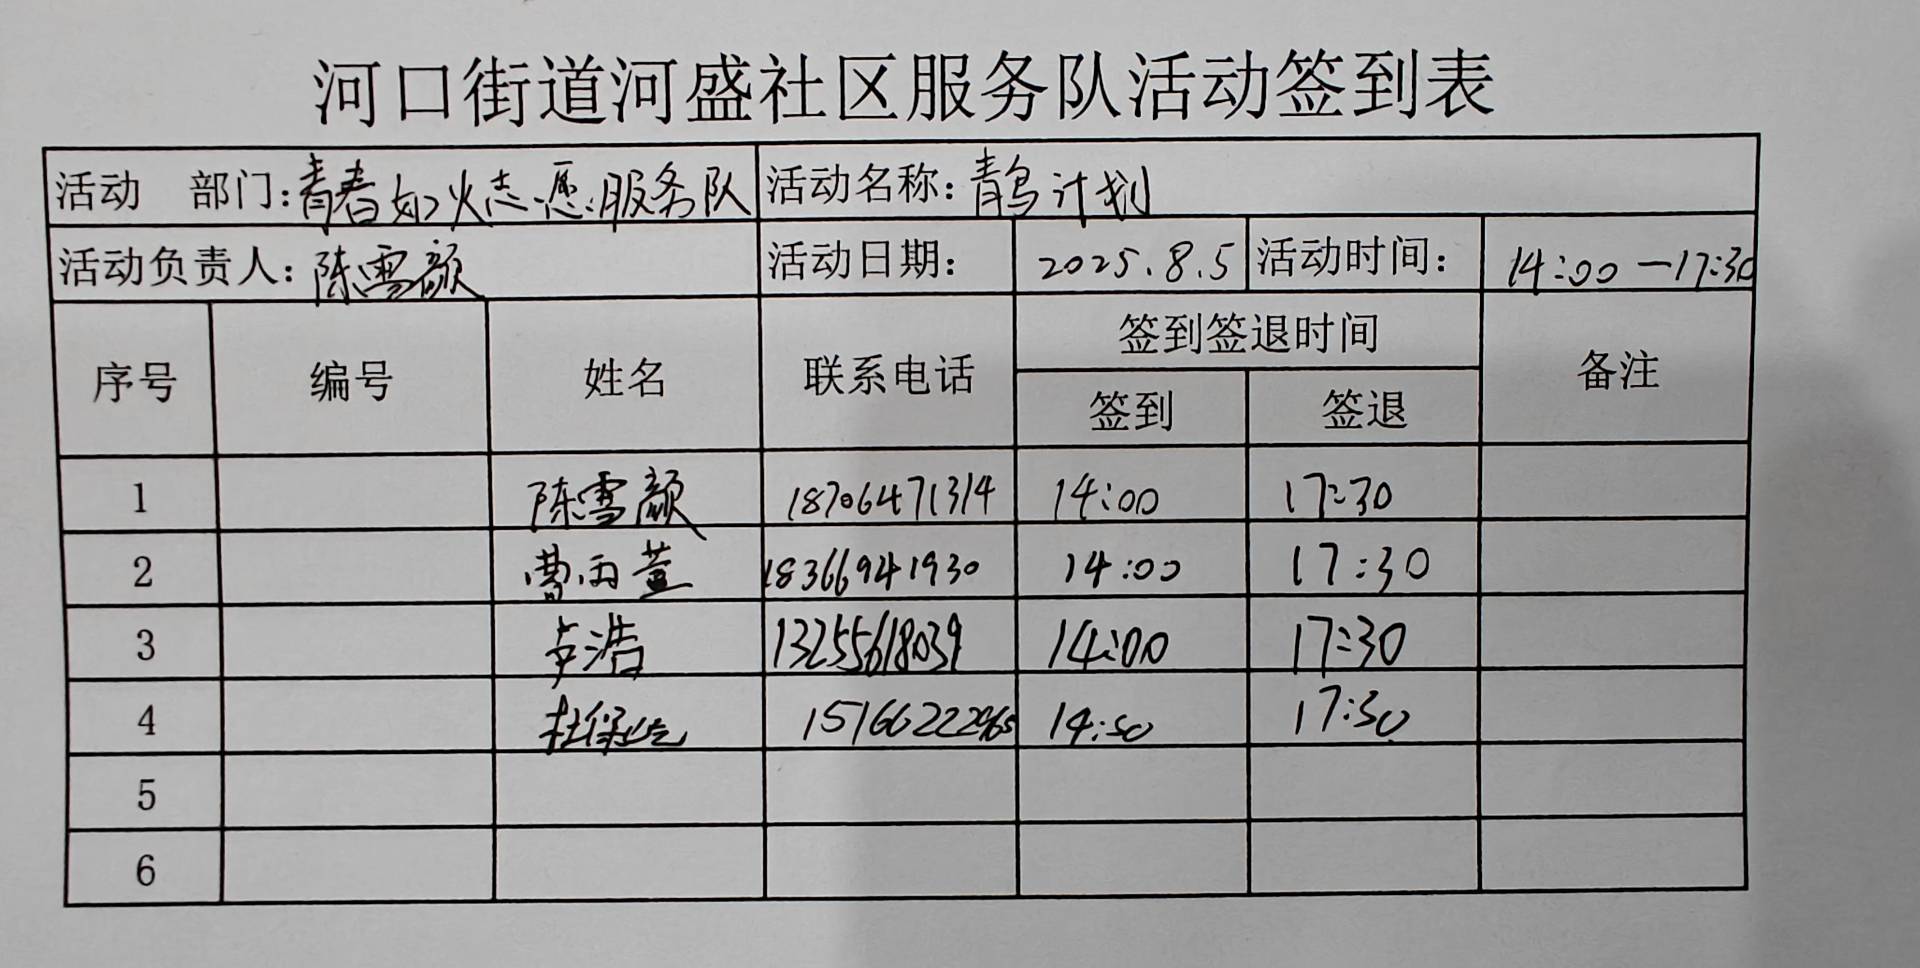 河口街道河盛社区服务队活动签到表
活动 部门:青春如火志愿服务队 活动名称:青鸟计划
活动负责人:陈雪颜 活动日期: 2025.8.5 活动时间: 14:00—17:30
序号 编号 姓名 联系电话 签到签退时间 备注
签到 签退
1 陈雪颜 18706471314 14:00 17:30
2 曹雨萱 18366941930 14:00 17:30
3 卢浩 13255618039 14:00 17:30
4 17:30
5
6